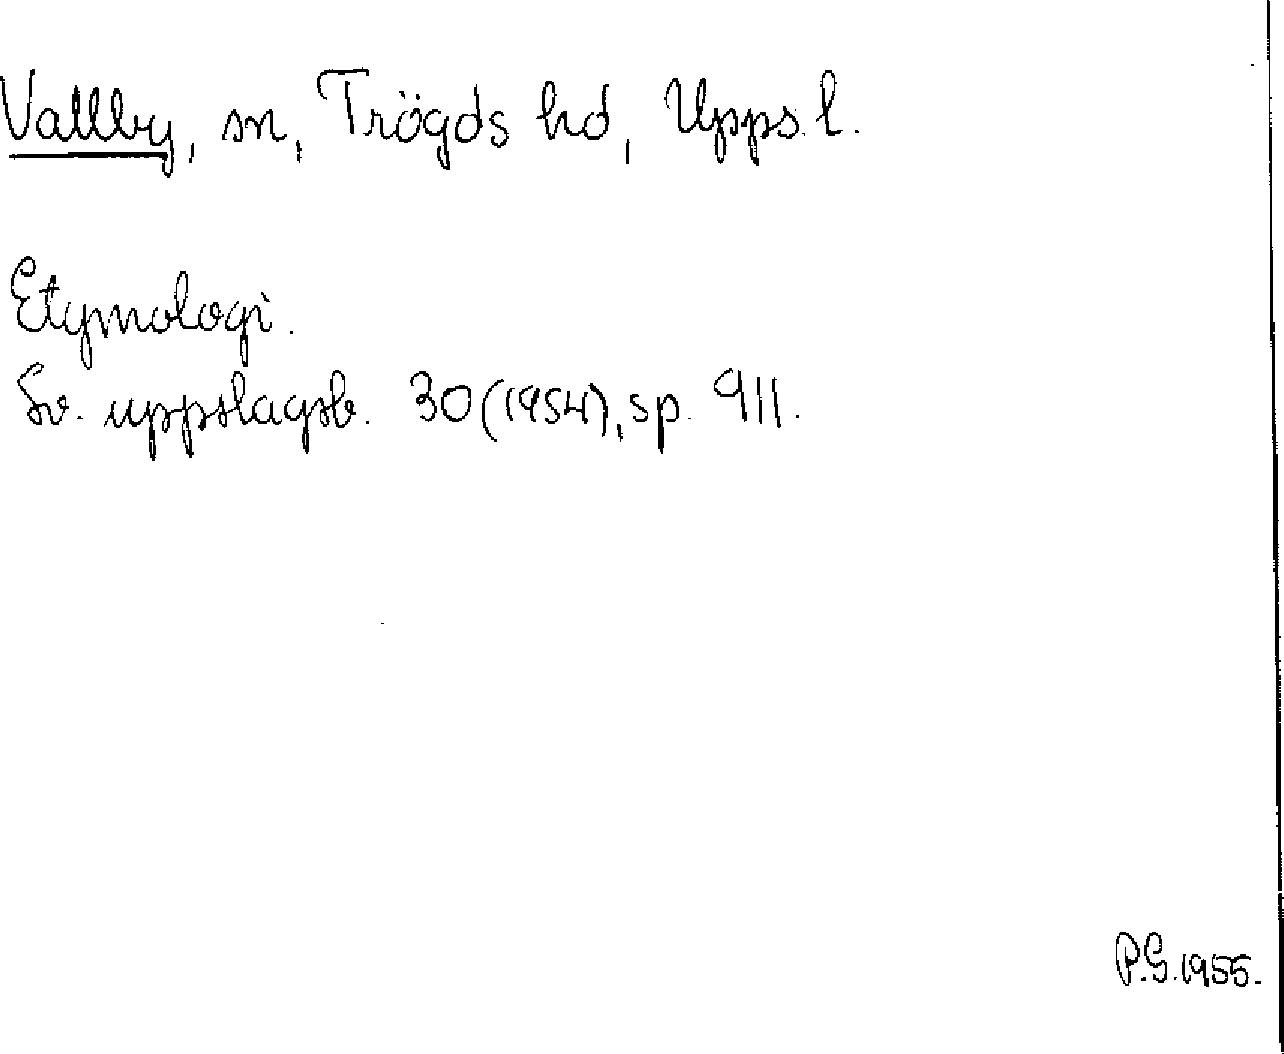 Vallby, sn, Trögds hd, Upps. l.
Etymologi.
Sv. uppslagsb. 30 (1954), sp. 911.
P.G. 1955.